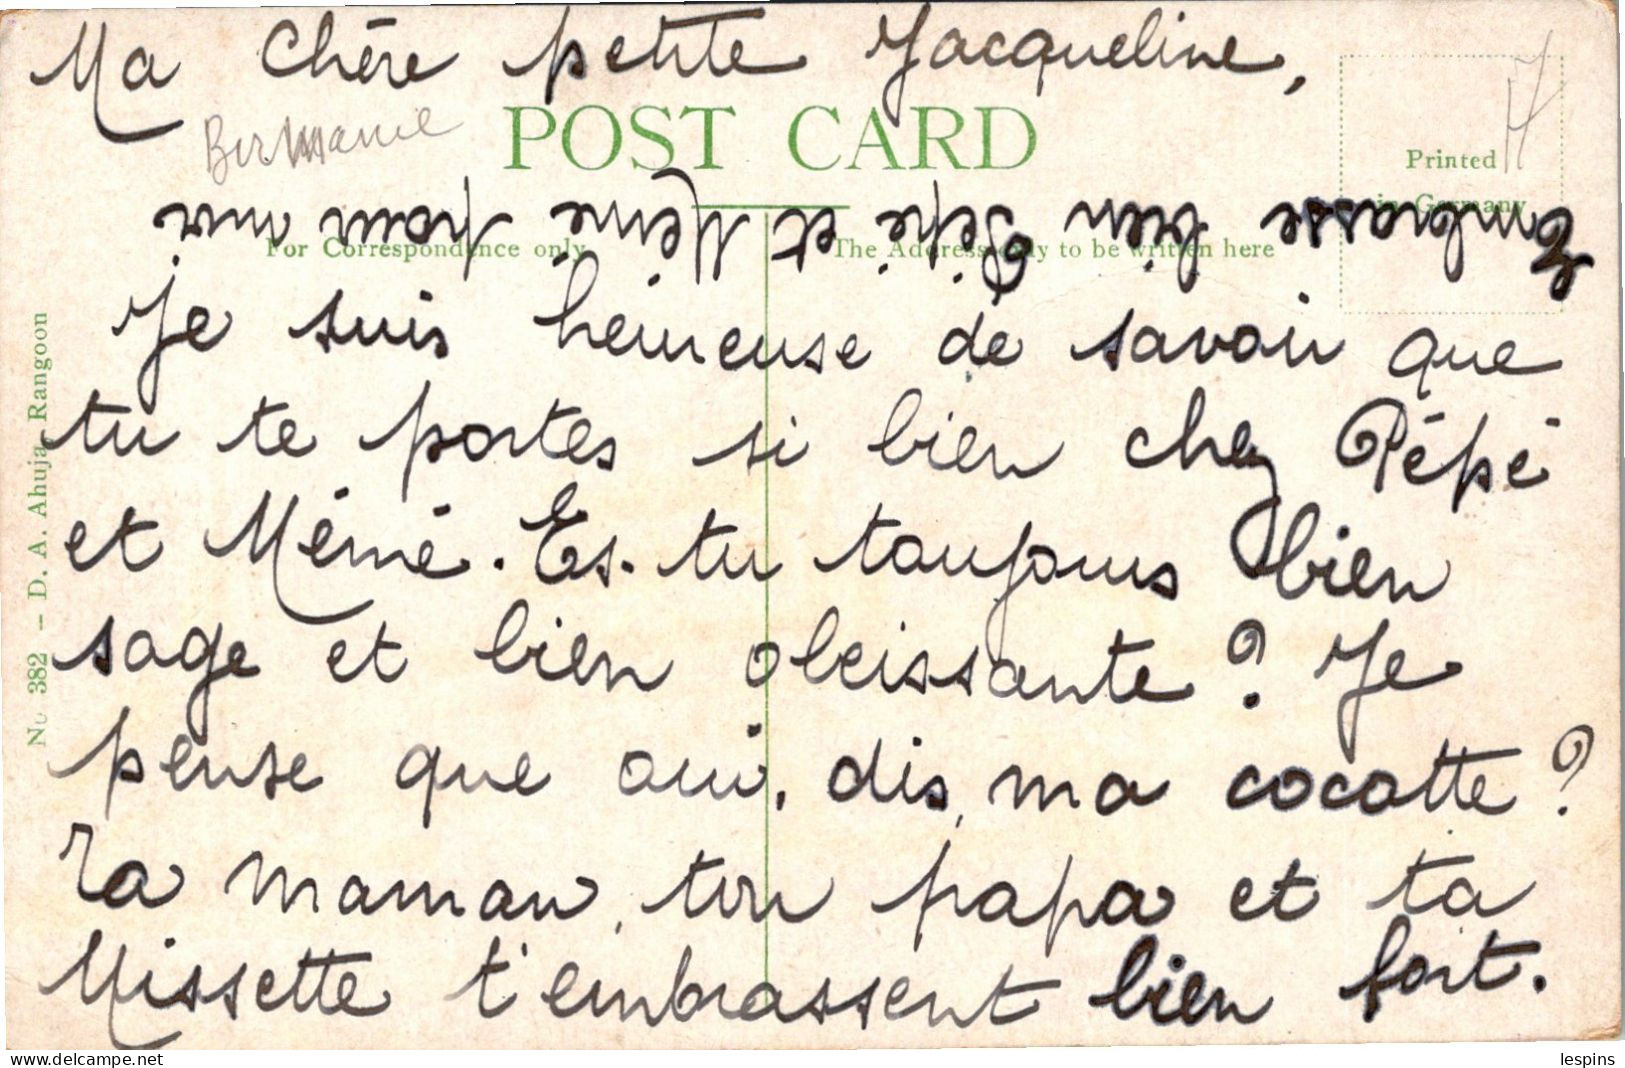 Ma Chère petite Jacqueline,
Birmanie
POST CARD
Printed
in Germany
Embrasse bien Pépé et Mémé pour moi
For Correspondence only.
The Address only to be written here
Je suis heureuse de savoir que
tu te portes si bien chez Pépé
et Mémé. Es-tu toujours bien
sage et bien obeissante ? Je
pense que oui, dis, ma cocotte ?
Ta maman, ton papa et ta
Missette t'embrassent bien fort.
No 382 – D. A. Ahuja, Rangoon
www.delcampe.net
lespins